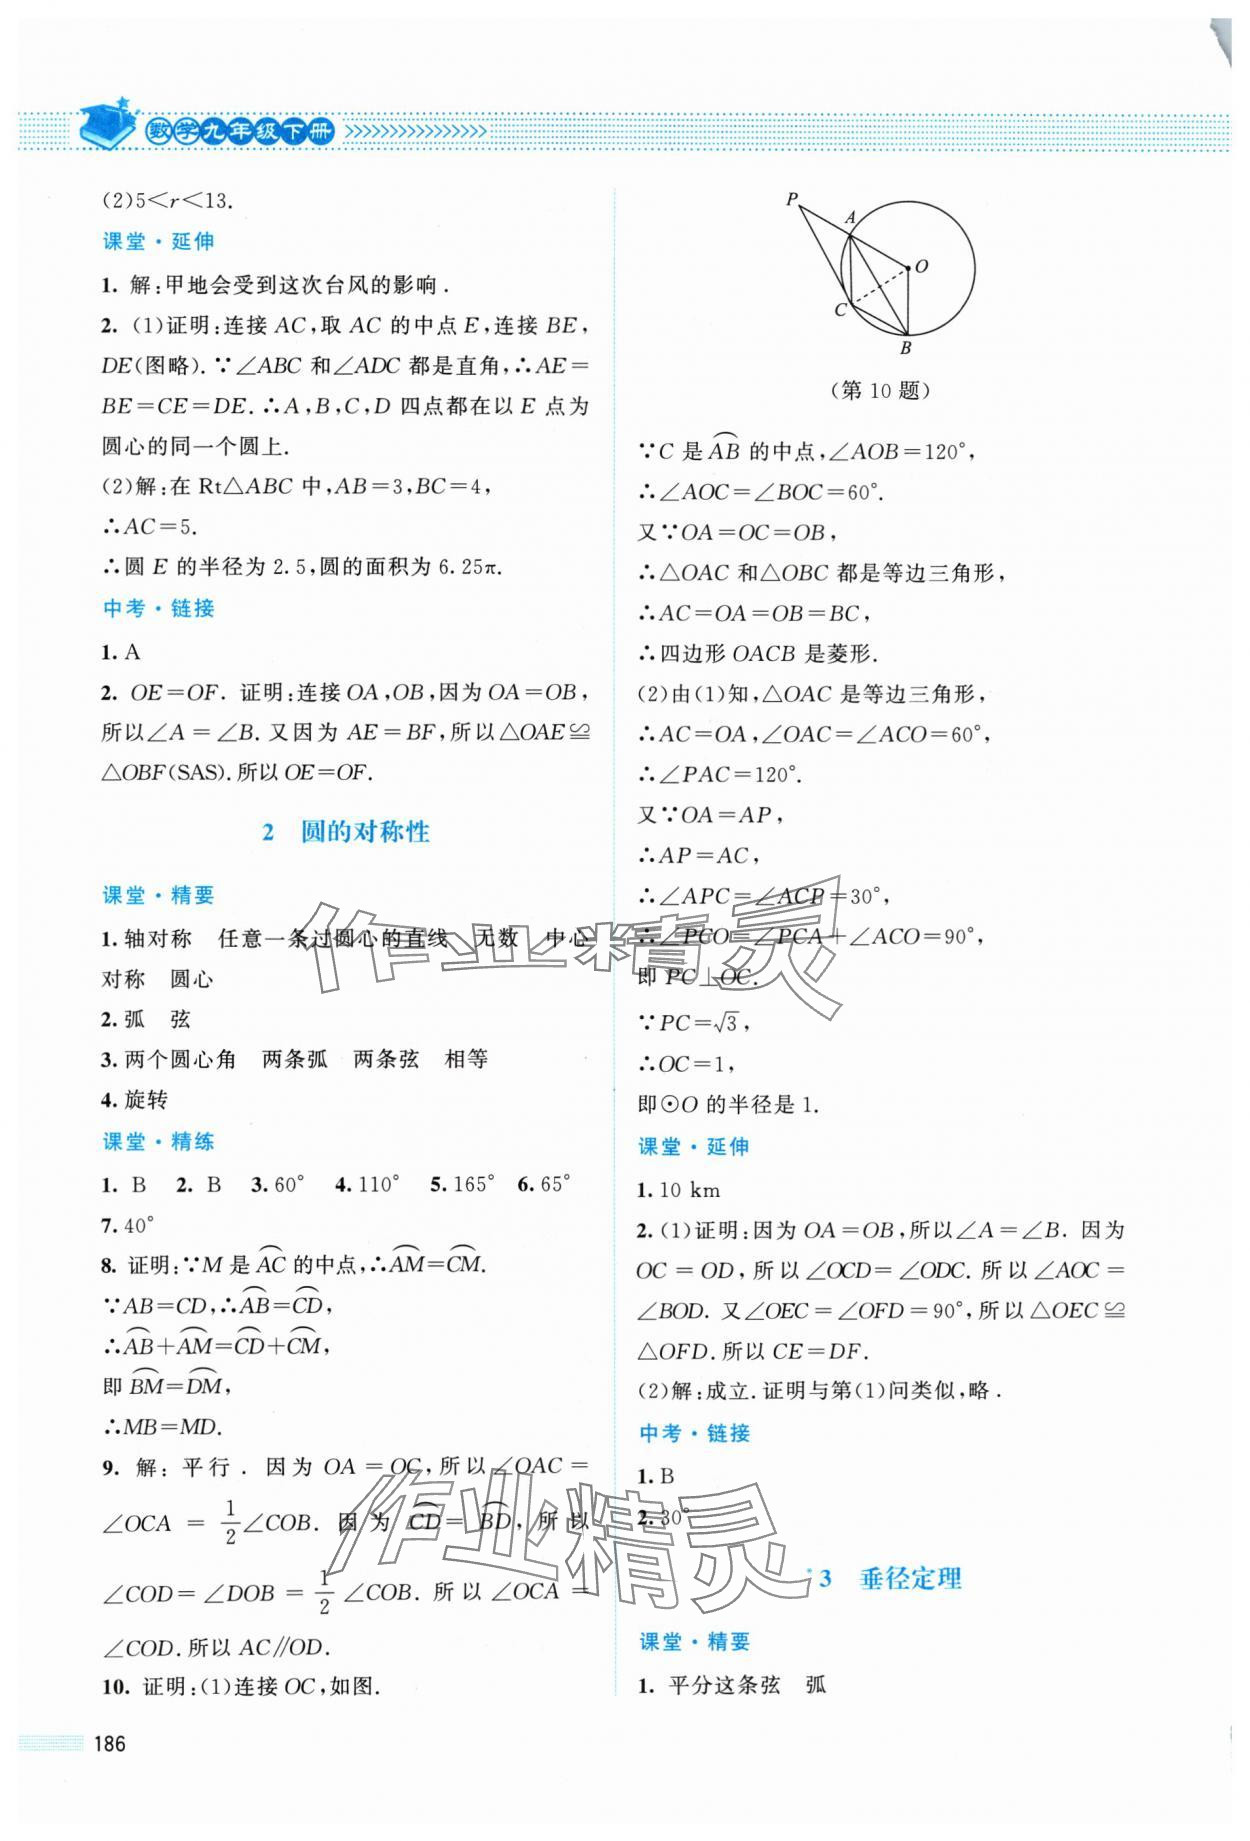 数学九年级下册
(2)5<r<13.
课堂·延伸
1. 解:甲地会受到这次台风的影响.
2. (1)证明:连接 AC,取 AC 的中点 E,连接 BE,
DE(图略).∵∠ABC 和∠ADC 都是直角,∴AE=
BE=CE=DE.∴A,B,C,D 四点都在以 E 点为
圆心的同一个圆上.
(2)解:在 Rt△ABC 中,AB=3,BC=4,
∴AC=5.
∴圆 E 的半径为 2.5,圆的面积为 6.25π.
中考·链接
1. A
2. OE=OF. 证明:连接 OA,OB,因为 OA=OB,
所以∠A=∠B.又因为 AE=BF,所以△OAE≌
△OBF(SAS).所以 OE=OF.
2 圆的对称性
课堂·精要
1. 轴对称 任意一条过圆心的直线 无数 中心
对称 圆心
2. 弧 弦
3. 两个圆心角 两条弧 两条弦 相等
4. 旋转
课堂·精练
1. B 2. B 3. 60° 4. 110° 5. 165° 6. 65°
7. 40°
8. 证明:∵M 是 AC⌒ 的中点,∴AM⌒=CM⌒.
∵AB=CD,∴AB⌒=CD⌒,
∴AB⌒+AM⌒=CD⌒+CM⌒,
即 BM⌒=DM⌒,
∴MB=MD.
9. 解:平行. 因为 OA=OC,所以∠OAC=
∠OCA=1/2∠COB. 因为 CD⌒=BD⌒,所以
∠COD=∠DOB=1/2∠COB. 所以∠OCA=
∠COD.所以 AC∥OD.
10. 证明:(1)连接 OC,如图.
P
A
O
C
B
(第 10 题)
∵C 是 AB⌒ 的中点,∠AOB=120°,
∴∠AOC=∠BOC=60°.
又∵OA=OC=OB,
∴△OAC 和△OBC 都是等边三角形,
∴AC=OA=OB=BC,
∴四边形 OACB 是菱形.
(2)由(1)知,△OAC 是等边三角形,
∴AC=OA,∠OAC=∠ACO=60°,
∴∠PAC=120°.
又∵OA=AP,
∴AP=AC,
∴∠APC=∠ACP=30°,
∴∠PCO=∠PCA+∠ACO=90°,
即 PC⊥OC.
∵PC=√3,
∴OC=1,
即⊙O 的半径是 1.
课堂·延伸
1. 10 km
2. (1)证明:因为 OA=OB,所以∠A=∠B. 因为
OC=OD,所以∠OCD=∠ODC. 所以∠AOC=
∠BOD. 又∠OEC=∠OFD=90°,所以△OEC≌
△OFD.所以 CE=DF.
(2)解:成立.证明与第(1)问类似,略.
中考·链接
1. B
2. 30°
*3 垂径定理
课堂·精要
1. 平分这条弦 弧
186
作业精灵
作业精灵